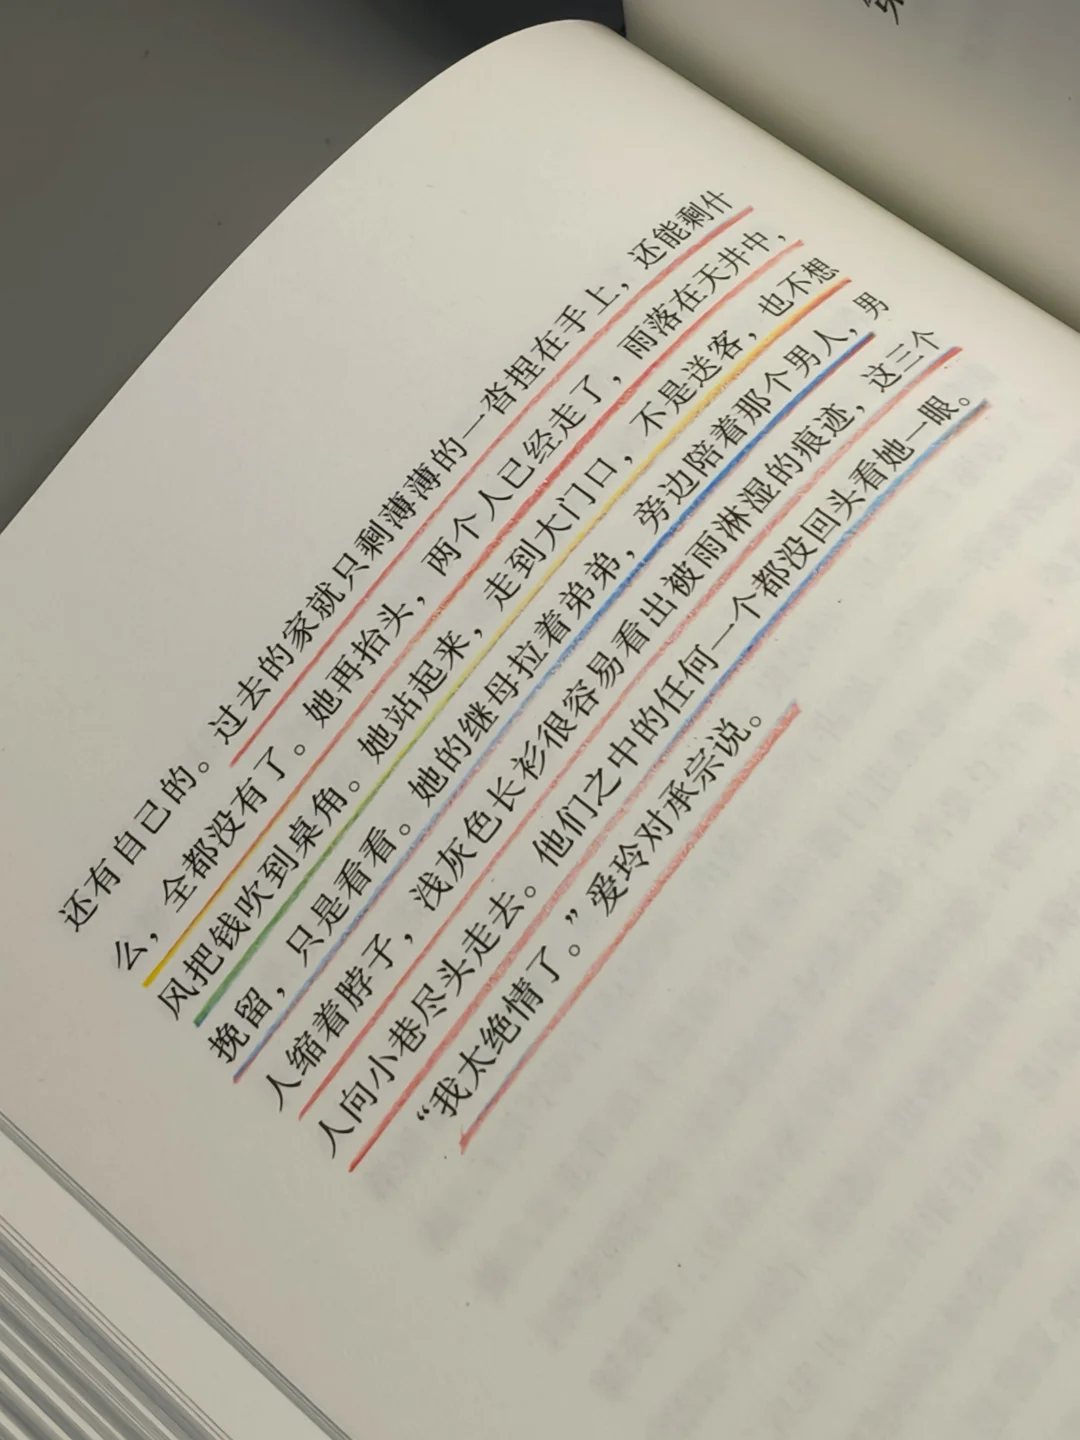 还有自己的。过去的家就只剩薄薄的一沓捏在手上，还能剩什
么，全都没有了。她再抬头，两个人已经走了，雨落在天井中，
风把钱吹到桌角。她站起来，走到大门口，不是送客，也不想
挽留，只是看看。她的继母拉着弟弟，旁边陪着那个男人，男
人缩着脖子，浅灰色长衫很容易看出被雨淋湿的痕迹，这三个
人向小巷尽头走去。他们之中的任何一个都没回头看她一眼。
“我太绝情了。”爱玲对承宗说。